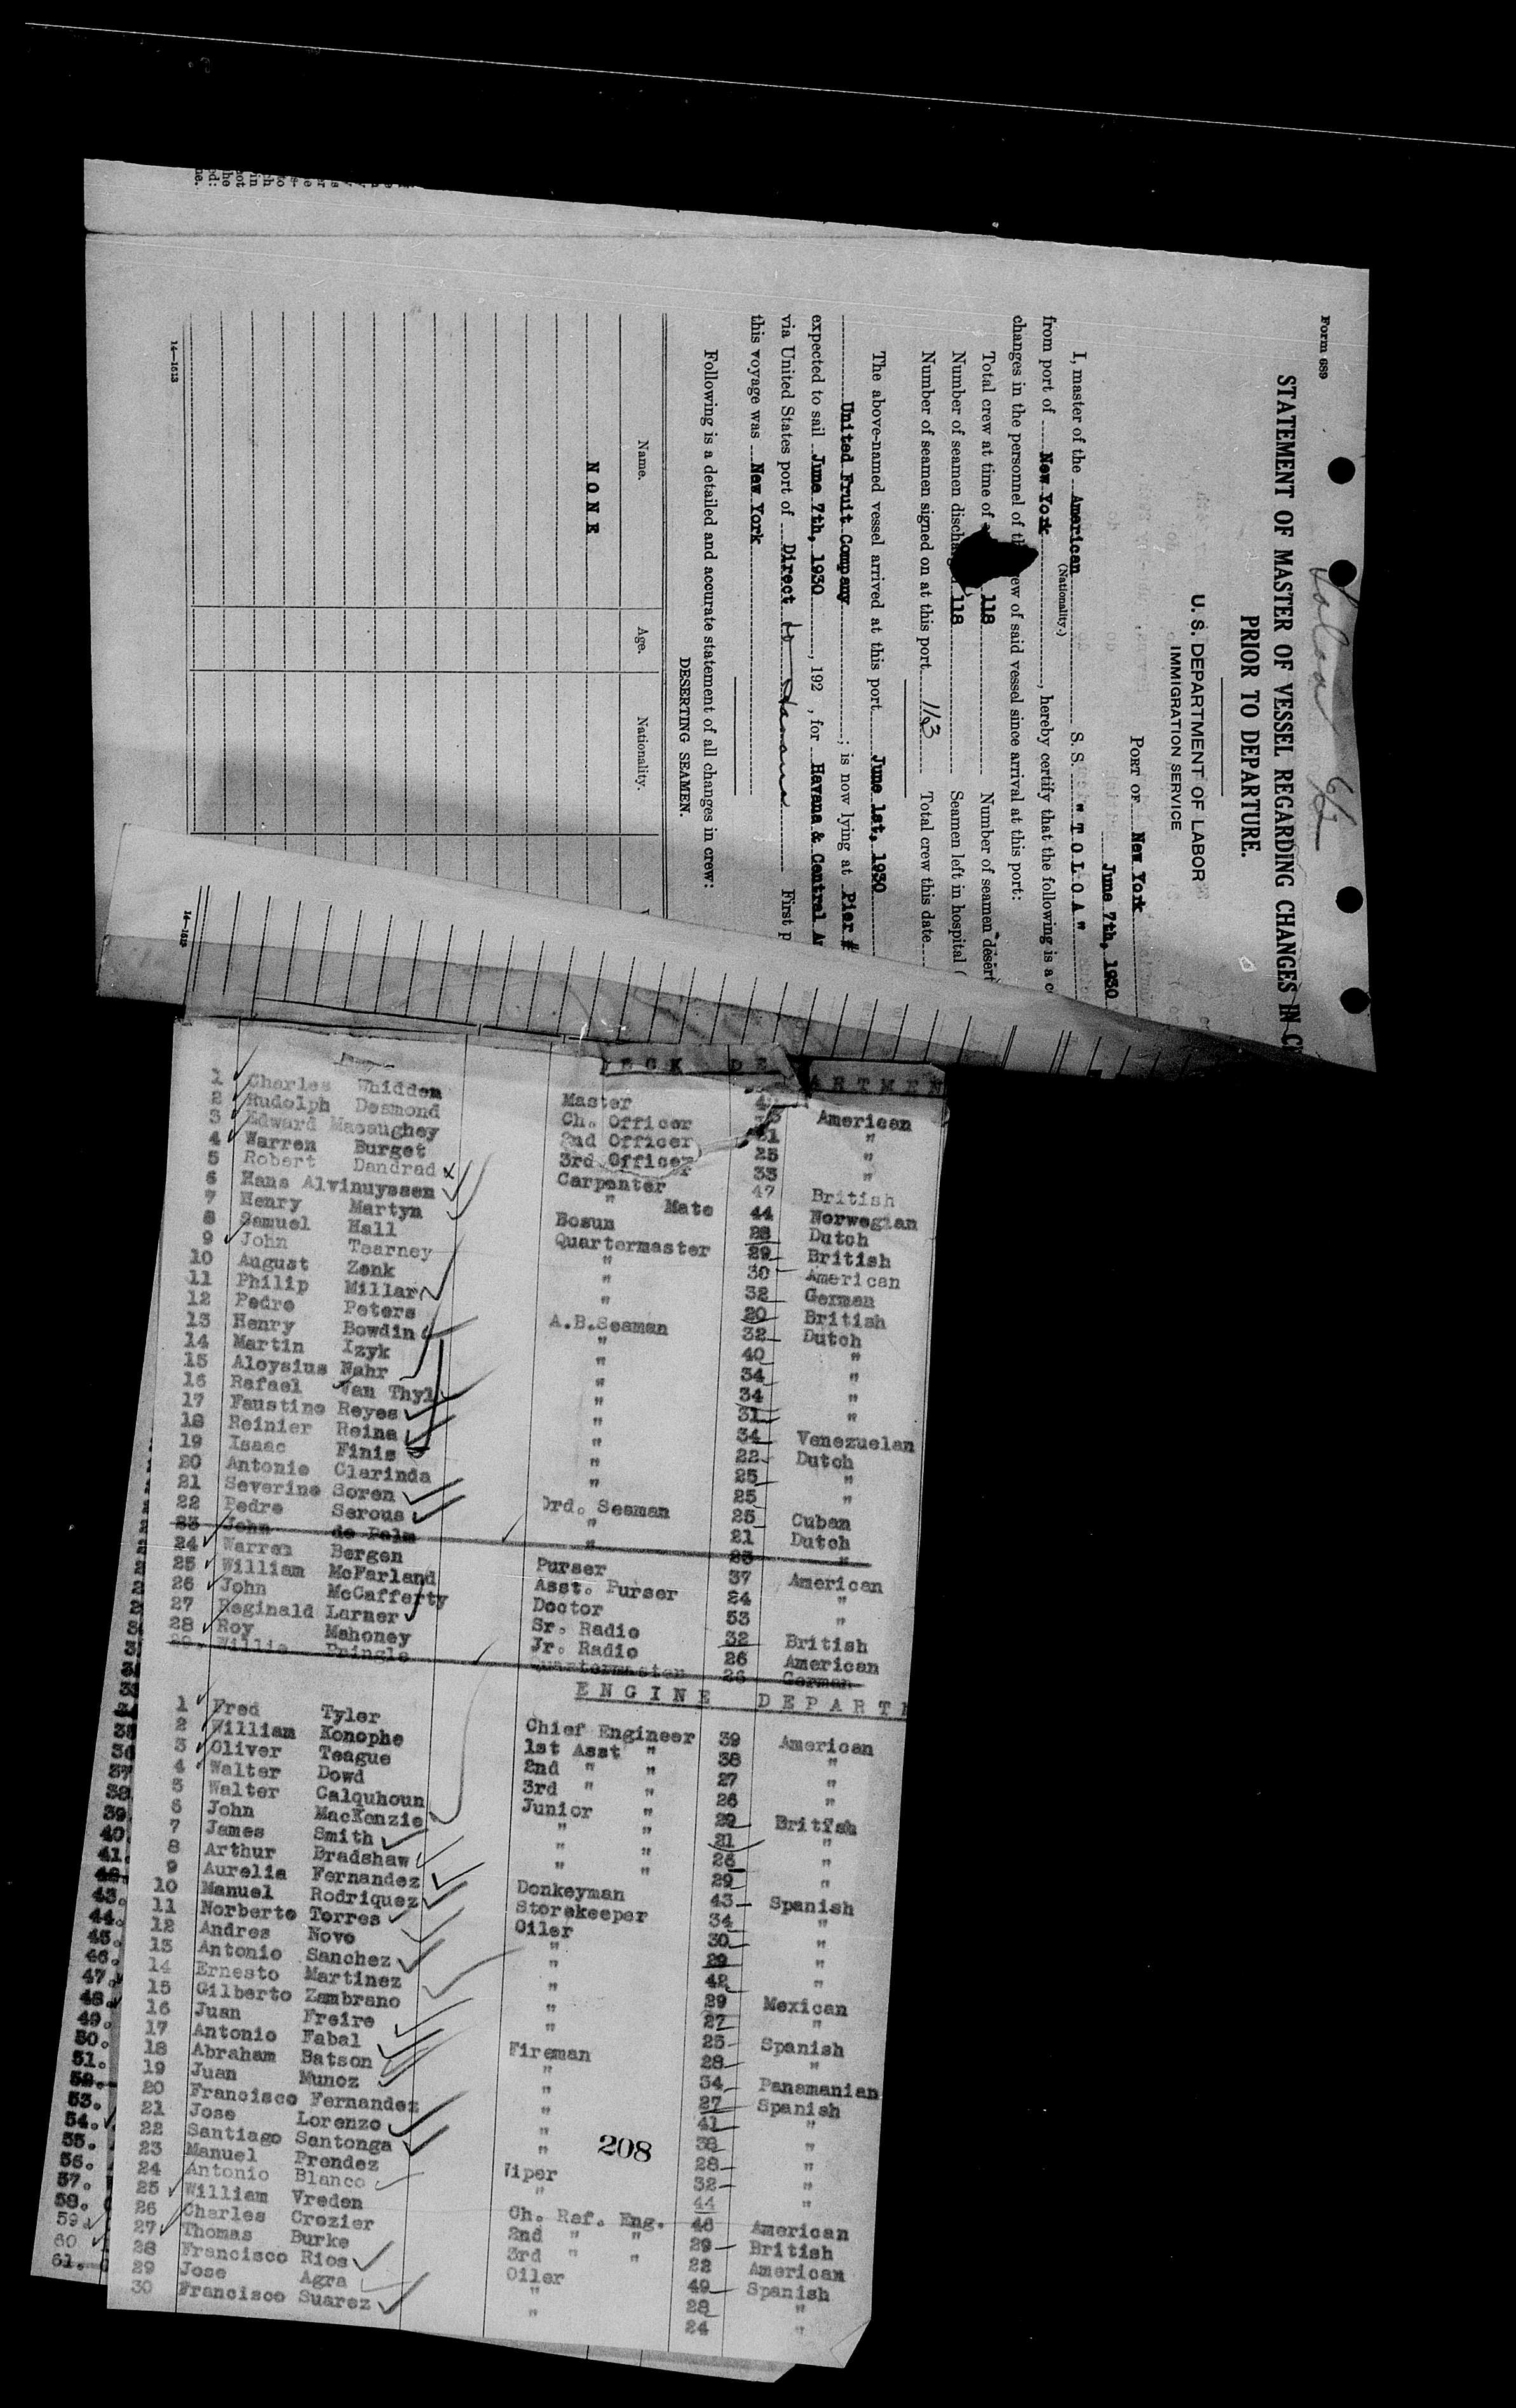 Form 689
STATEMENT OF MASTER OF VESSEL REGARDING CHANGES IN
PRIOR TO DEPARTURE.
U. S. DEPARTMENT OF LABOR
IMMIGRATION SERVICE
PORT OF New York
June 7th, 1930
I, master of the American S. S. "T O L O A"
(Nationality.)
from port of New York, hereby certify that the following is a
changes in the personnel of said vessel since arrival at this port:
Total crew at time of 118 Number of seamen
Number of seamen 118 Seamen left in hospital
Number of seamen signed on at this port 113 Total crew this date
The above-named vessel arrived at this port June 1st, 1930
United Fruit Company; is now lying at Pier #
expected to sail June 7th, 1930, 192 , for Havana & Central
via United States port of Direct to Havana First
this voyage was New York
Following is a detailed and accurate statement of all changes in crew:
DESERTING SEAMEN.
Name. Age. Nationality.
N O N E
14—1513
14—1513
1 Charles Whidden Master
2 Rudolph Desmond Ch. Officer American
3 Edward Macaughey 2nd Officer 31 "
4 Warren Burget 3rd Officer 25 "
5 Robert Dandrad Carpenter 33 "
6 Hans Alvinuyssen " Mate 47 British
7 Henry Martyn Bosun 44 Norwegian
8 Samuel Hall Quartermaster 28 Dutch
9 John Tearney " 29 British
10 August Zenk " 30 American
11 Philip Millar " 32 German
12 Pedro Peters A.B.Seaman 20 British
13 Henry Bowdin " 32 Dutch
14 Martin Izyk " 40 "
15 Aloysius Nahr " 34
16 Rafael Van Thyl " 34 "
17 Faustino Reyes " 31 "
18 Reinier Reina " 34 Venezuelan
19 Isaac Finis " 22 Dutch
20 Antonio Clarinda " 25 "
21 Severino Soren Ord. Seaman 25 "
22 Pedro Serous " 25 Cuban
23 John de Palm " 21 Dutch
24 Warren Bergen Purser 23 "
25 William McFarland Asst. Purser 37 American
26 John McCafferty Doctor 24 "
27 Reginald Larner Sr. Radio 53 "
28 Roy Mahoney Jr. Radio 32 British
29. Willie Pringle Quartermaster 26 American
26 German
E N G I N E D E P A R T
1 Fred Tyler Chief Engineer 39 American
2 William Konophe 1st Asst " 38 "
3 Oliver Teague 2nd " " 27 "
4 Walter Dowd 3rd " " 26 "
5 Walter Calquhoun Junior " 29 British
6 John MacKenzie " " 21 "
7 James Smith " " 26 "
8 Arthur Bradshaw " " 29 "
9 Aurelia Fernandez Donkeyman 43 Spanish
10 Manuel Rodriquez Storekeeper 34 "
11 Norberto Torres Oiler 30 "
12 Andres Novo " 29 "
13 Antonio Sanchez " 42 "
14 Ernesto Martinez " 29 Mexican
15 Gilberto Zambrano " 27 "
16 Juan Freire " 25 Spanish
17 Antonio Fabal Fireman 28 "
18 Abraham Batson " 34 Panamanian
19 Juan Munoz " 27 Spanish
20 Francisco Fernandez " 41 "
21 Jose Lorenzo " 38 "
22 Santiago Santonga " 28 "
23 Manuel Prendez Wiper 32 "
24 Antonio Blanco " 44 "
25 William Vreden Ch. Ref. Eng. 46 American
26 Charles Crozier 2nd " " 29 British
27 Thomas Burke 3rd " " 22 American
28 Francisco Rios Oiler 49 Spanish
29 Jose Agra " 28 "
30 Francisco Suarez " 24 "
208